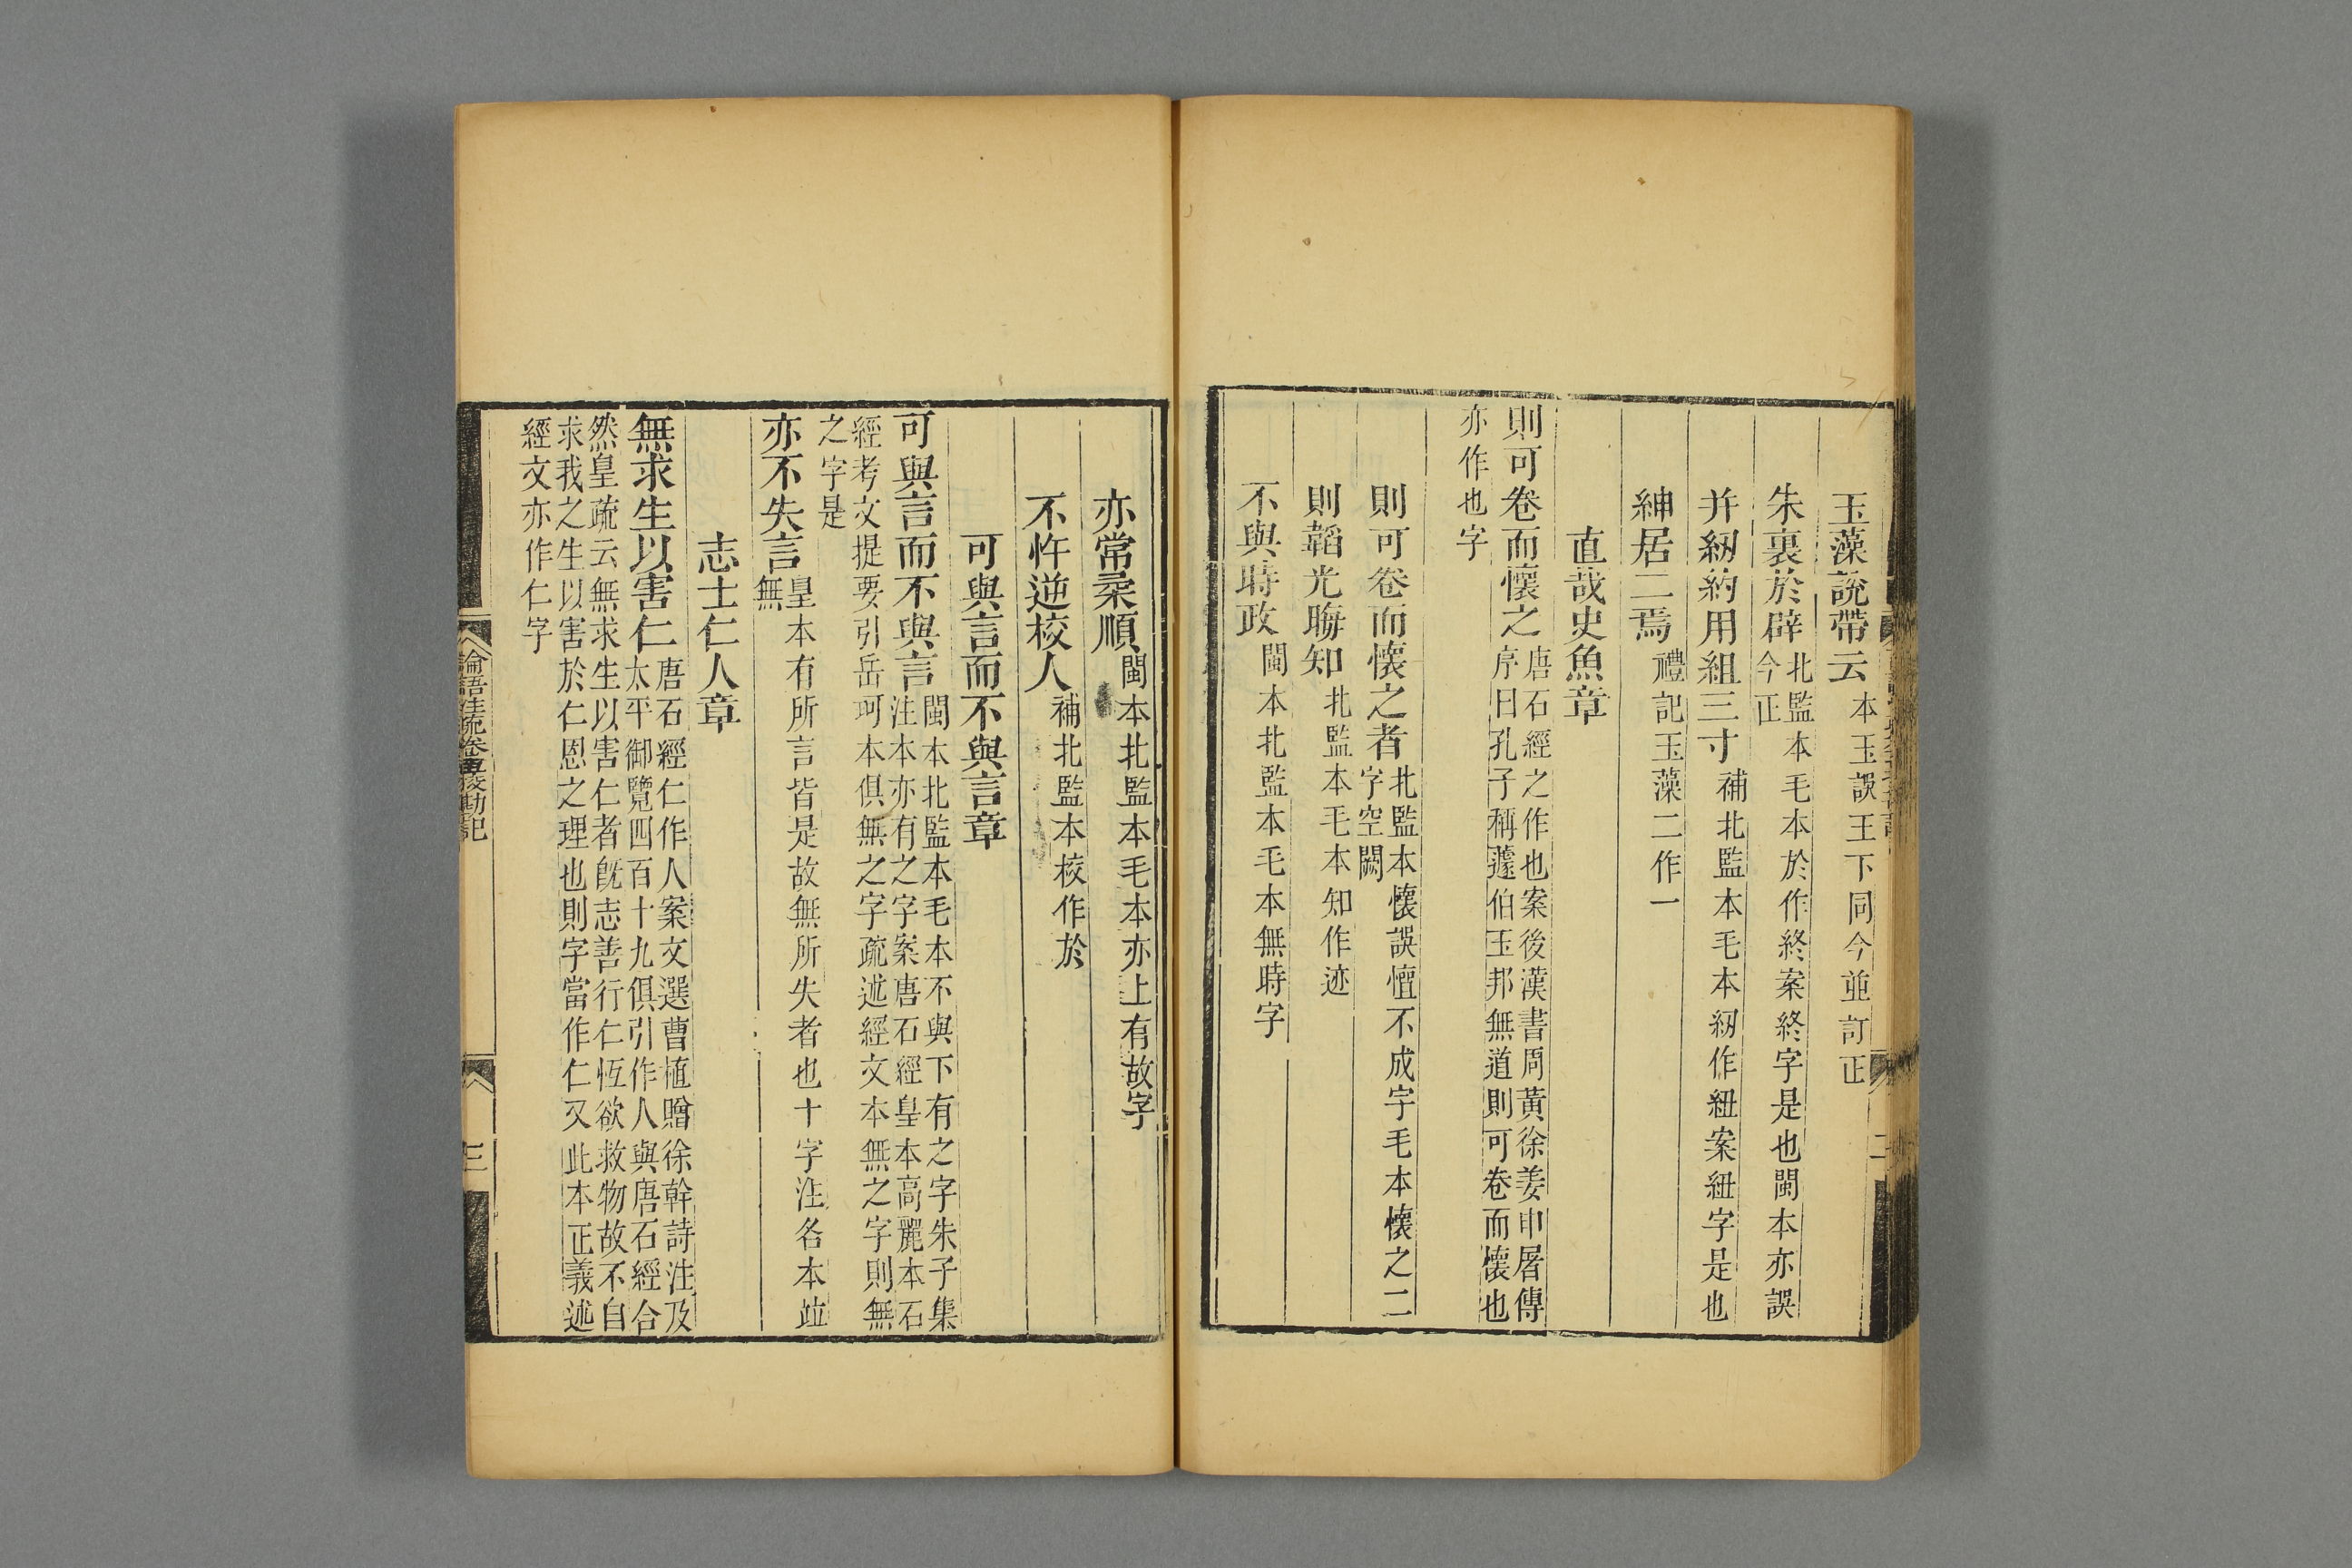 玉藻說帶云本玉誤王下同今並訂正
朱裏於辟北監本毛本於作終案終字是也閩本亦誤
今正
并紉約用組三寸補北監本毛本紉作紐案紐字是也
紳居二焉禮記玉藻二作一
直哉史魚章
則可卷而懷之唐石經之作也案後漢書周黃徐姜申屠傳
序曰孔子稱蘧伯玉邦無道則可卷而懷也
亦作也字
則可卷而懷之者北監本懷誤懷不成字毛本懷之二
字空闕
則韜光晦知北監本毛本知作迹
不與時政閩本北監本毛本無時字
亦常柔順閩本北監本毛本亦上有故字
不忤逆校人補北監本校作於
可與言而不與言章
可與言而不與言閩本北監本毛本不與下有之字朱子集
注本亦有之字案唐石經皇本高麗本石
經考文提要引岳珂本俱無之字疏述經文本無之字則無
之字是
亦不失言皇本有所言皆是故無所失者也十字注各本竝
無
志士仁人章
無求生以害仁唐石經仁作人案文選曹植贈徐幹詩注及
太平御覽四百十九俱引作人與唐石經合
然皇疏云無求生以害仁者旣志善行仁恆欲救物故不自
求我之生以害於仁恩之理也則字當作仁又此本正義述
經文亦作仁字
論語注疏卷十五校勘記
三